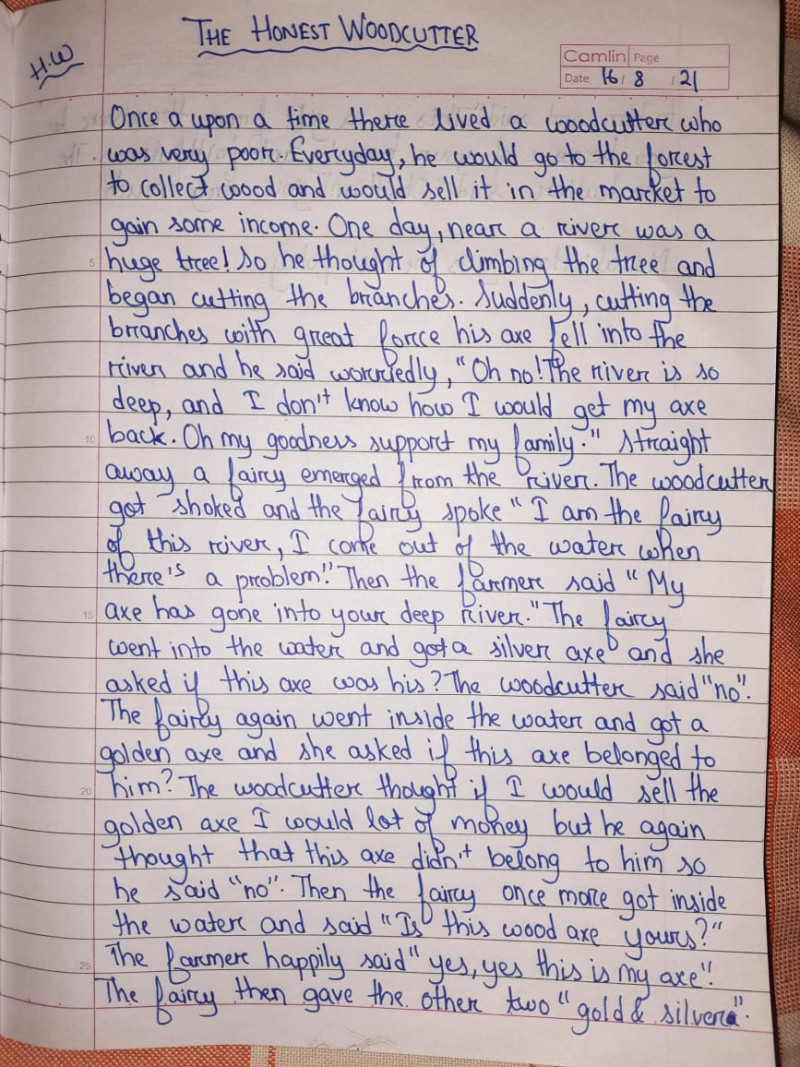 THE HONEST WOODCUTTER
H.W
Camlin Page
Date 16/ 8 / 21
Once a upon a time there lived a woodcutter who
was very poor. Everyday, he would go to the forest
to collect wood and would sell it in the market to
gain some income. One day, near a river was a
5 huge tree! So he thought of climbing the tree and
began cutting the branches. Suddenly, cutting the
branches with great force his axe fell into the
river and he said worriedly, "Oh no! The river is so
deep, and I don't know how I would get my axe
10 back. Oh my goodness support my family." Straight
away a fairy emerged from the river. The woodcutter
got shoked and the fairy spoke "I am the fairy
of this river, I come out of the water when
there's a problem!" Then the farmer said "My
15 axe has gone into your deep river." The fairy
went into the water and got a silver axe and she
asked if this axe was his? The woodcutter said "no".
The fairy again went inside the water and got a
golden axe and she asked if this axe belonged to
20 him? The woodcutter thought if I would sell the
golden axe I would lot of money but he again
thought that this axe didn't belong to him so
he said "no". Then the fairy once more got inside
the water and said "Is this wood axe yours?"
25 The farmer happily said "yes, yes this is my axe".
The fairy then gave the other two "gold & silver".